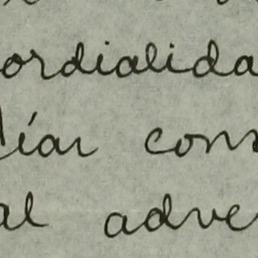 ordialida
líar con
al adve